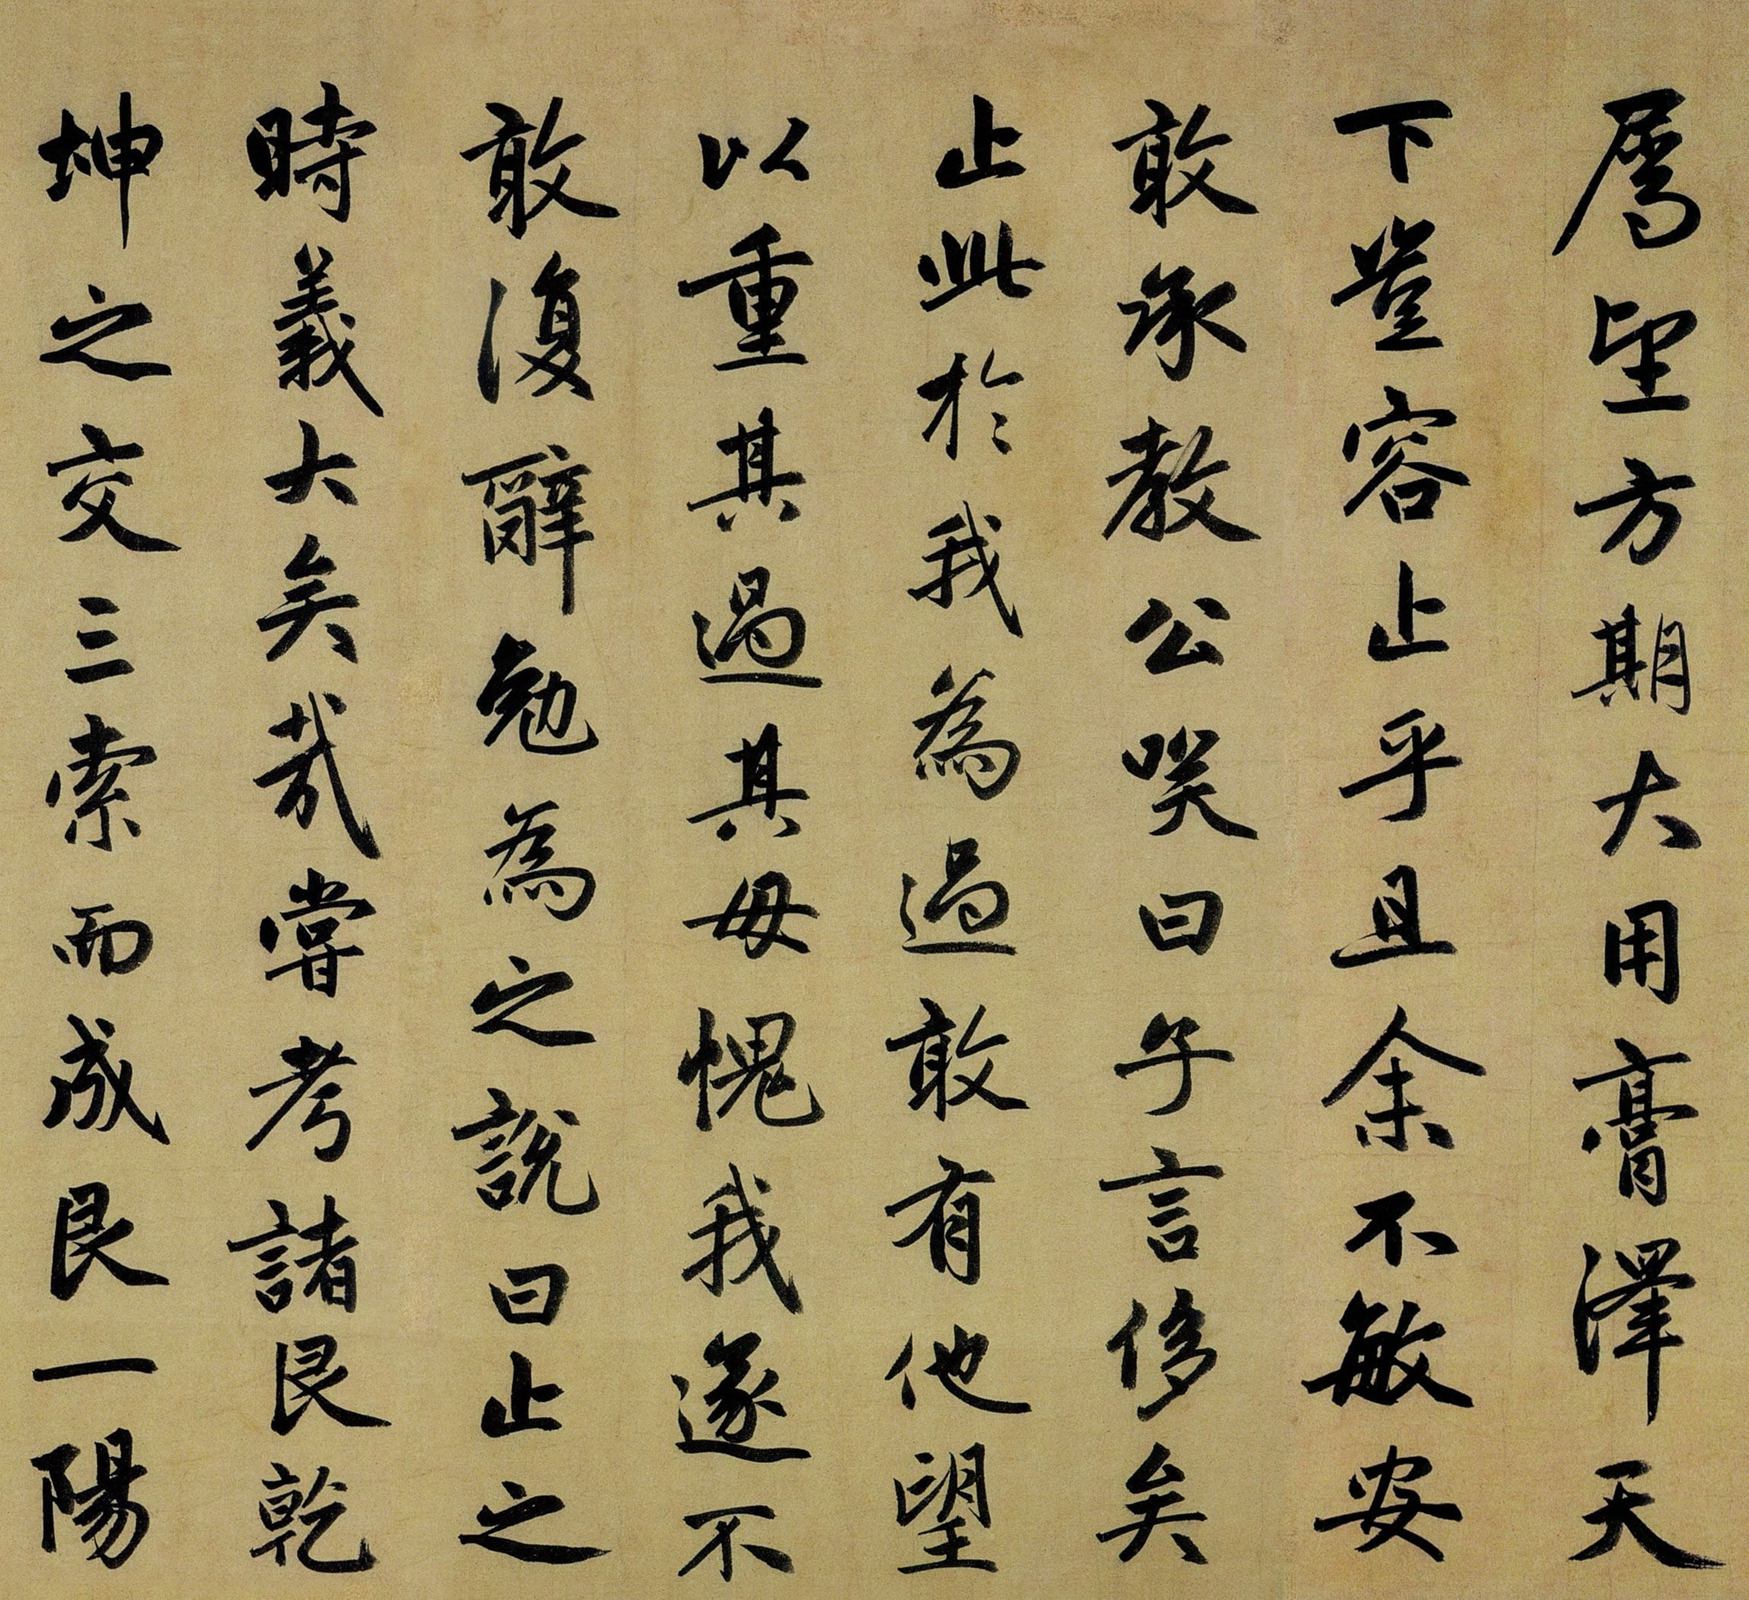 屬望方期大用膏澤天
下豈容止乎且余不敏安
敢承教公笑曰子言侈矣
止此於我為過敢有他望
以重其過其毋愧我遂不
敢復辭勉為之說曰止之
時義大矣哉嘗考諸艮乾
坤之交三索而成艮一陽